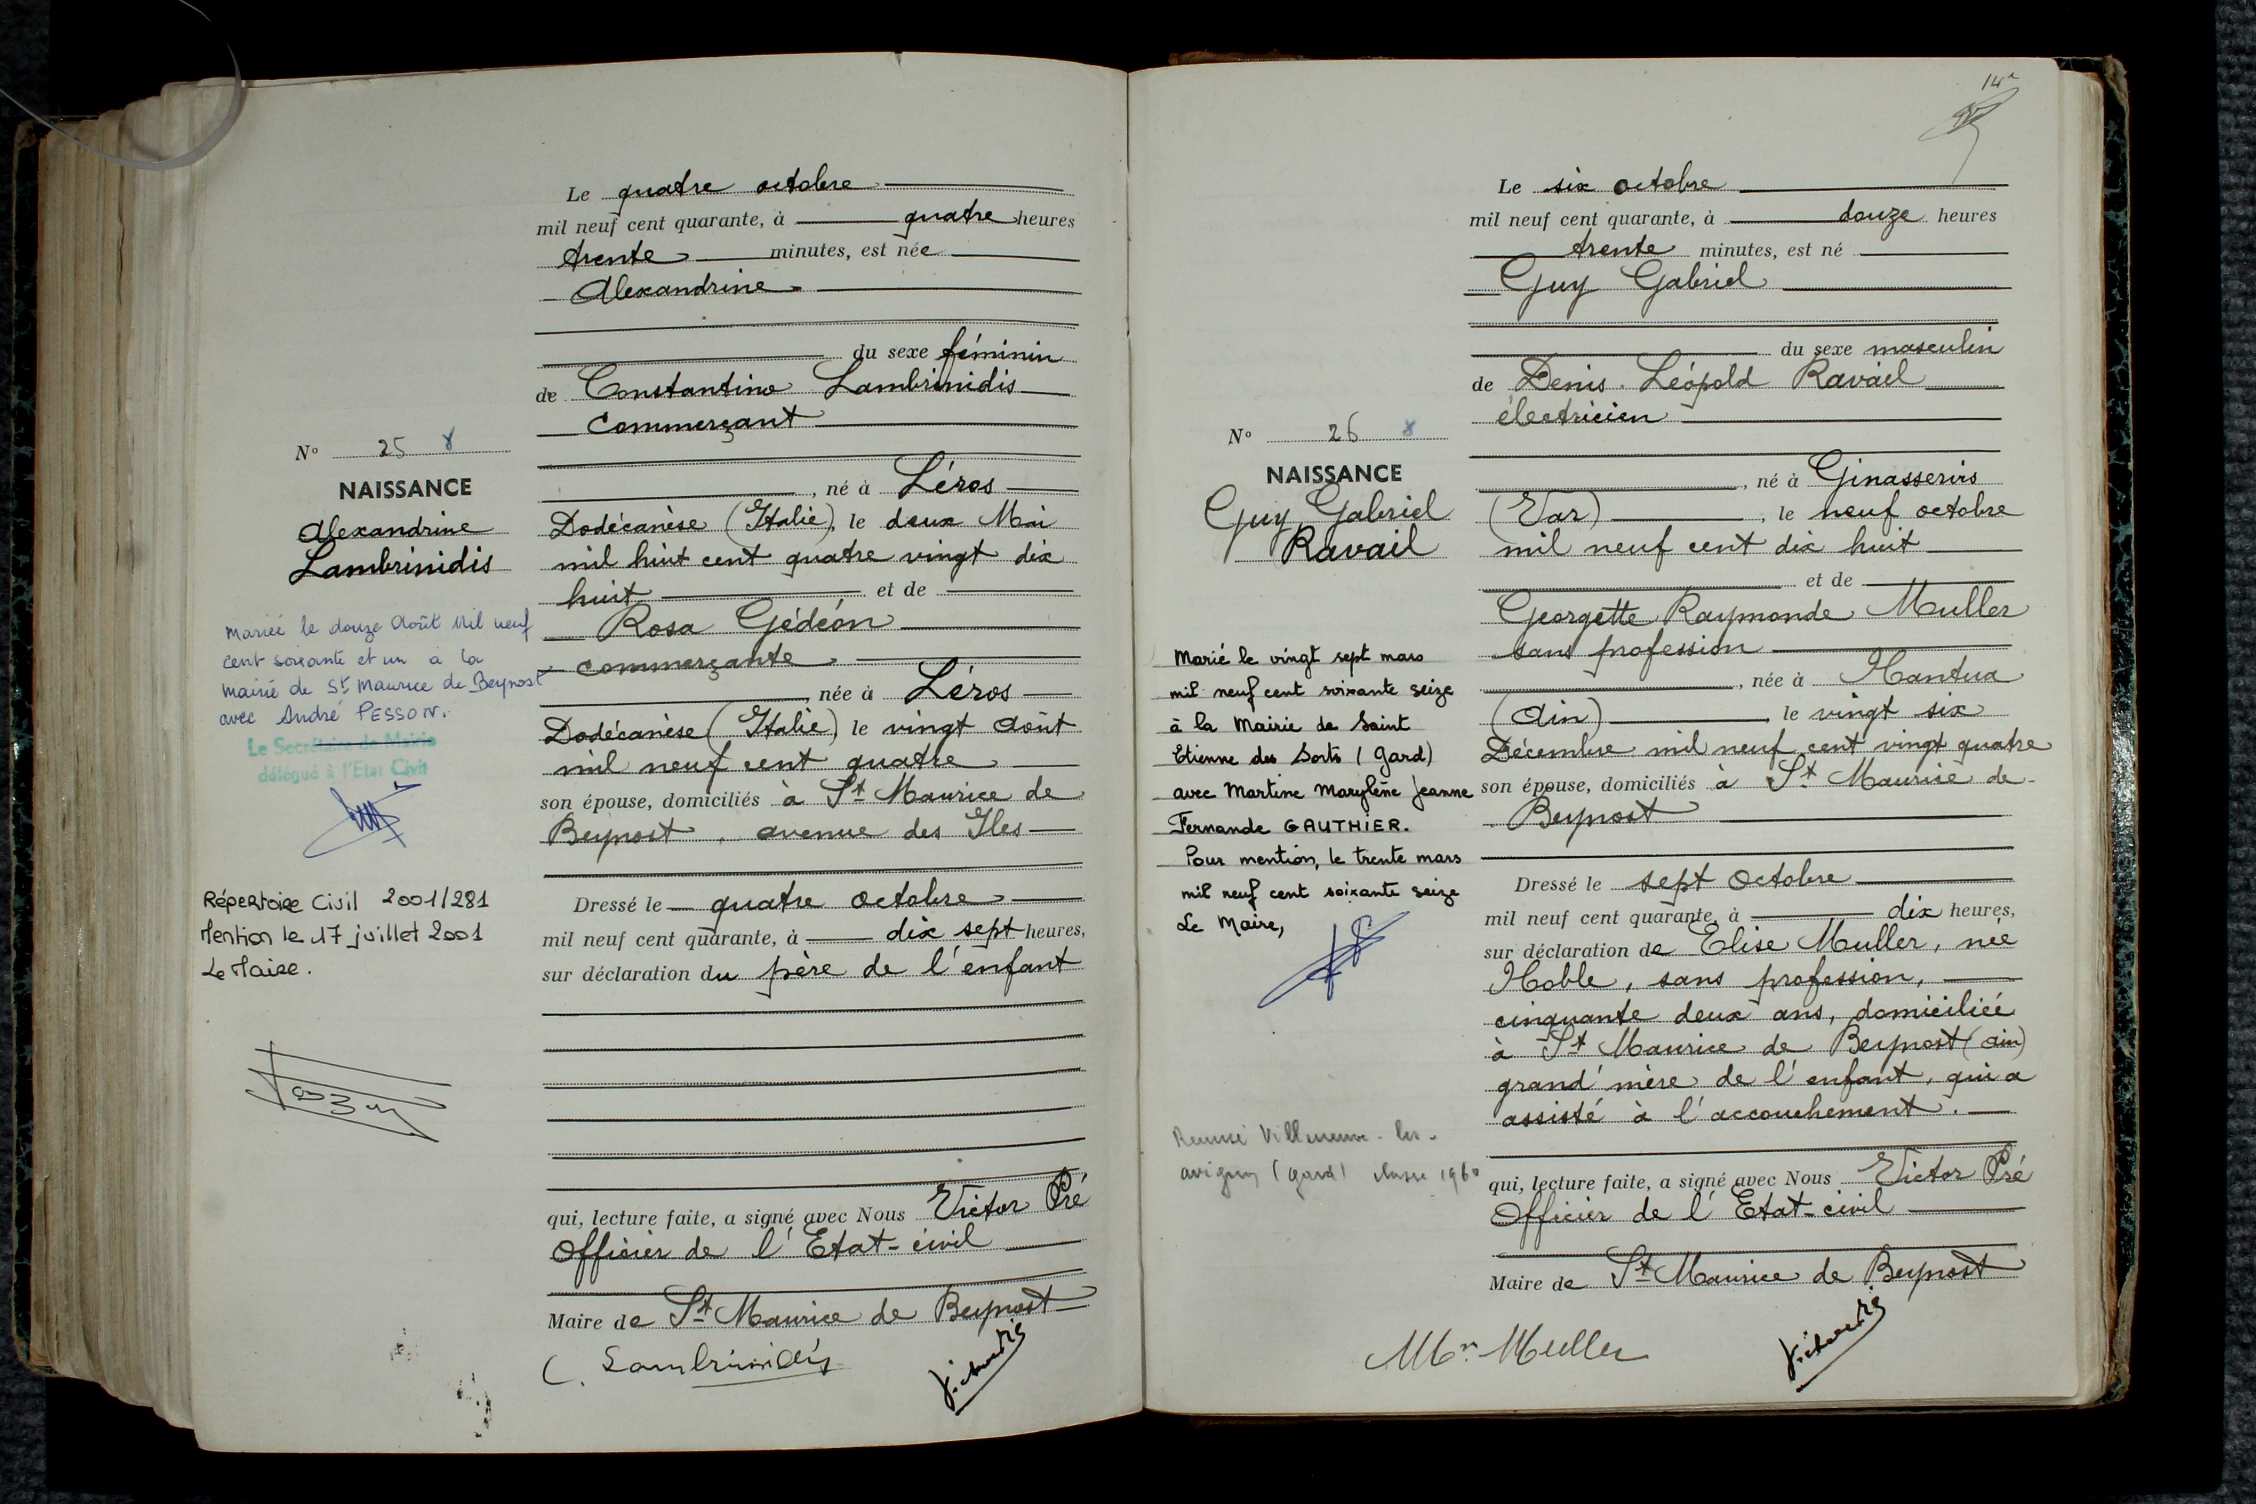 Le quatre octobre
mil neuf cent quarante, à quatre heures
trente minutes, est née
Alexandrine
du sexe féminin
de Constantino Lambrinidis
commerçant
N° 25
NAISSANCE
Alexandrine
Lambrinidis
, né à Léros
Dodécanèse (Italie), le deux Mai
mil huit cent quatre vingt dix
huit et de
Rosa Gédéón
commerçante
, née à Léros
Dodécanèse (Italie) le vingt Août
mil neuf cent quatre
son épouse, domiciliés à St Maurice de
Beynost, avenue des Iles
Mariée le douze Août Mil neuf
cent soixante et un à la
mairie de St Maurice de Beynost
avec André PESSON.
Le Secrétaire de Mairie
délégué à l'Etat Civil
Répertoire Civil 2001/281
Mention le 17 juillet 2001
Le Maire.
Dressé le quatre octobre
mil neuf cent quarante, à dix sept heures,
sur déclaration du père de l'enfant
qui, lecture faite, a signé avec Nous Victor Pré
Officier de l'Etat-civil
Maire de St Maurice de Beynost
C. Lambrinidis
14
Le six octobre
mil neuf cent quarante, à douze heures
trente minutes, est né
Guy Gabriel
du sexe masculin
de Denis Léopold Ravail
électricien
N° 26
NAISSANCE
Guy Gabriel
Ravail
, né à Ginasservis
(Var), le neuf octobre
mil neuf cent dix huit
et de
Georgette Raymonde Muller
sans profession
, née à Nantua
(Ain) le vingt six
Décembre mil neuf cent vingt quatre
son épouse, domiciliés à St Maurice de
Beynost
Marié le vingt sept mars
mil neuf cent soixante seize
à la Mairie de Saint
Etienne des Sorts (Gard)
avec Martine Marylène Jeanne
Fernande GAUTHIER.
Pour mention, le trente mars
mil neuf cent soixante seize
Le Maire,
Dressé le sept octobre
mil neuf cent quarante, à dix heures,
sur déclaration de Elise Muller, née
Noble, sans profession,
cinquante deux ans, domiciliée
à St Maurice de Beynost (Ain)
grand'mère de l'enfant, qui a
assisté à l'accouchement.
Recensé Villeneuve-les-
avignon (gard) classe 1960
qui, lecture faite, a signé avec Nous Victor Pré
Officier de l'Etat-civil
Maire de St Maurice de Beynost
Muller